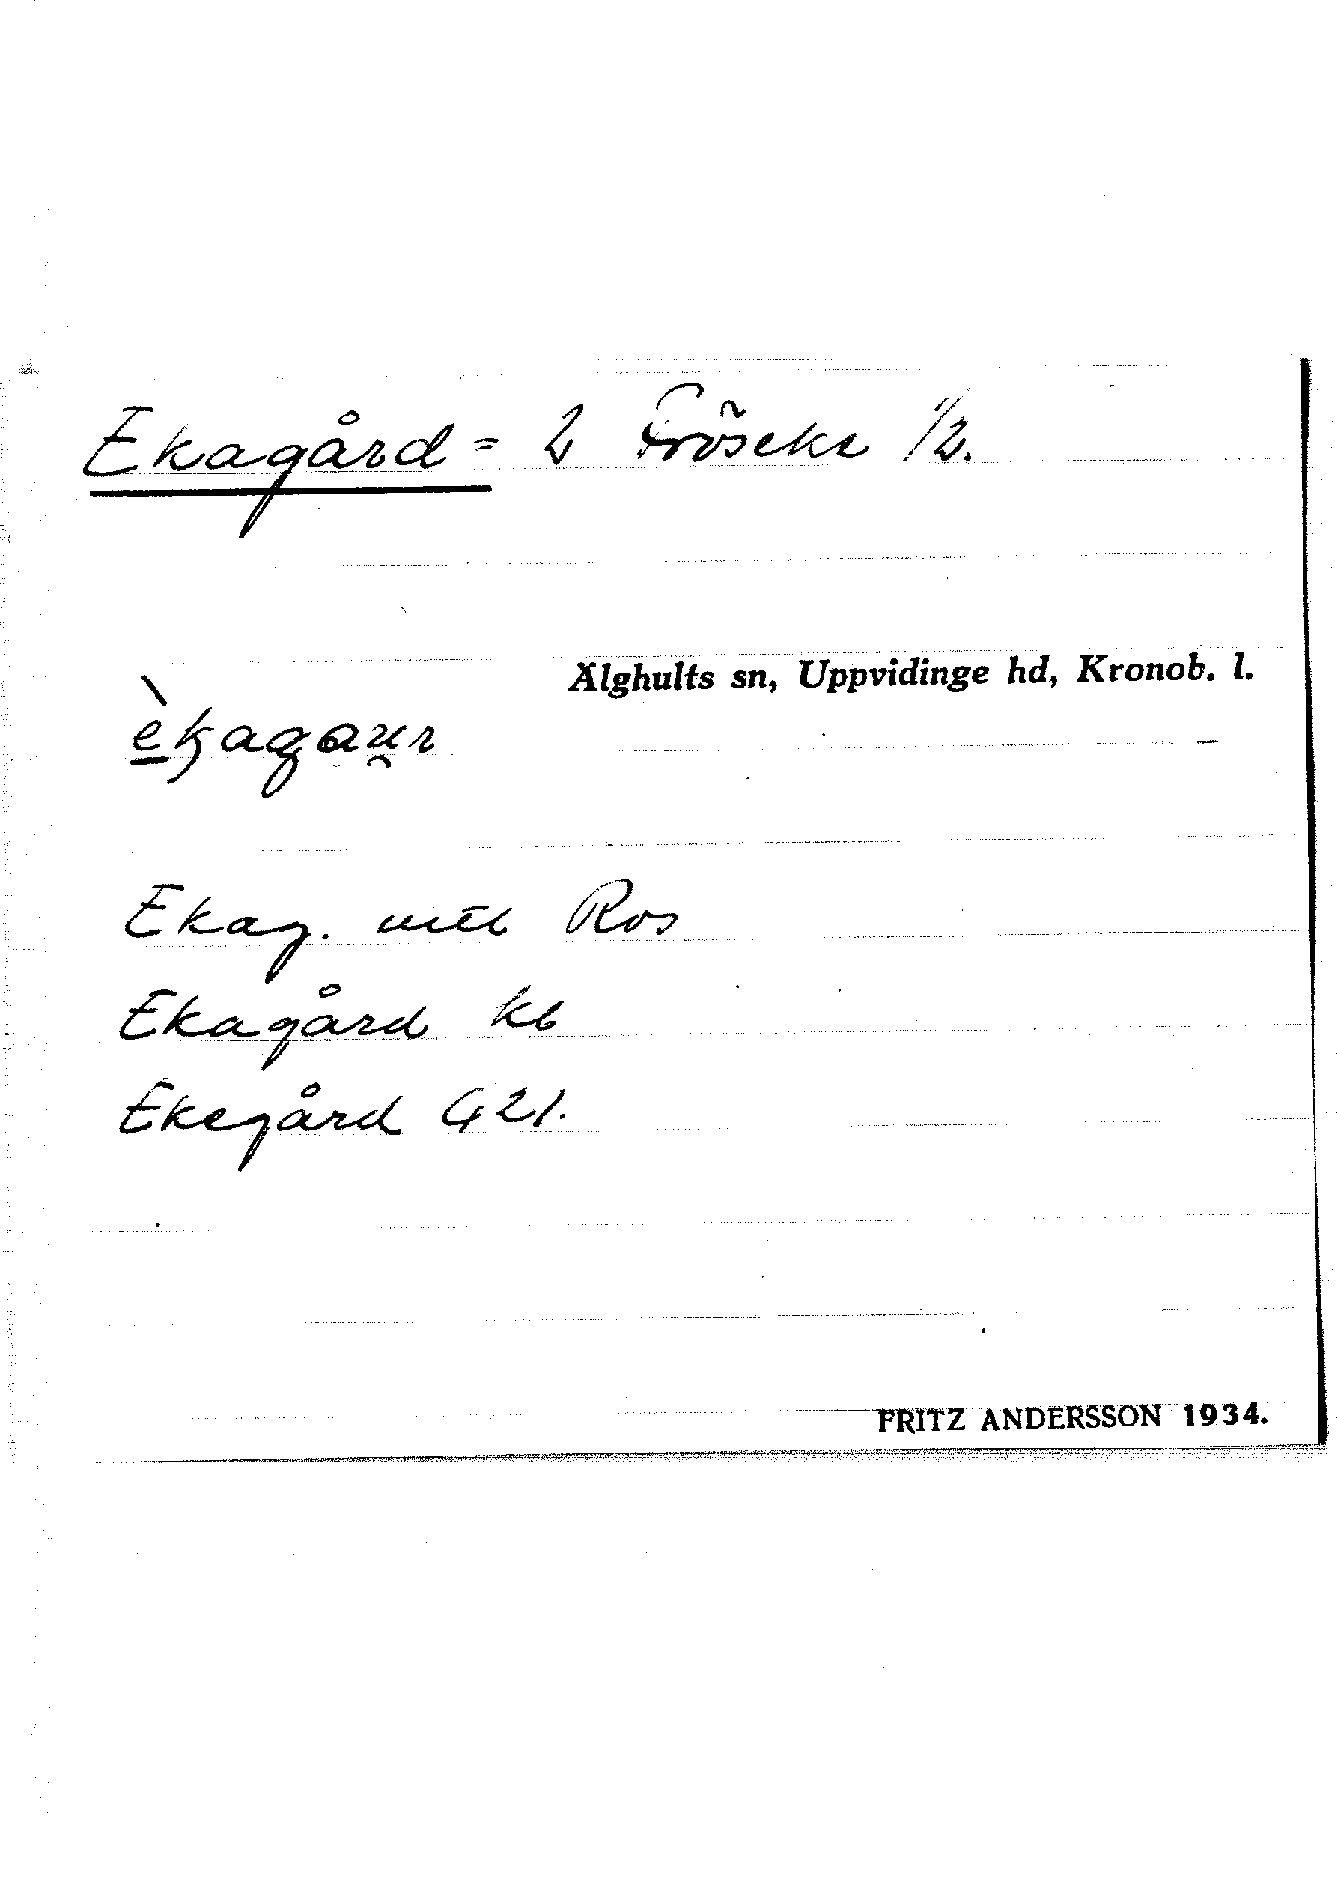 Ekagård = 2 Fröseke 1/2.
Älghults sn, Uppvidinge hd, Kronob. l.
èkagaur
Ekag. Ros
Ekagård kb
Ekegård G21.
FRITZ ANDERSSON 1934.